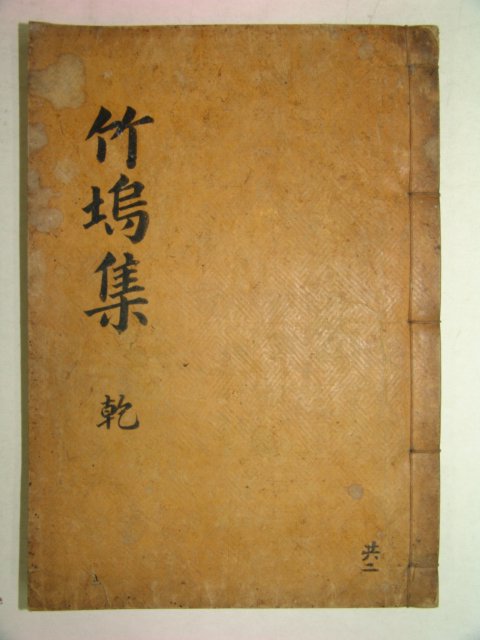 竹塢集
乾
共二